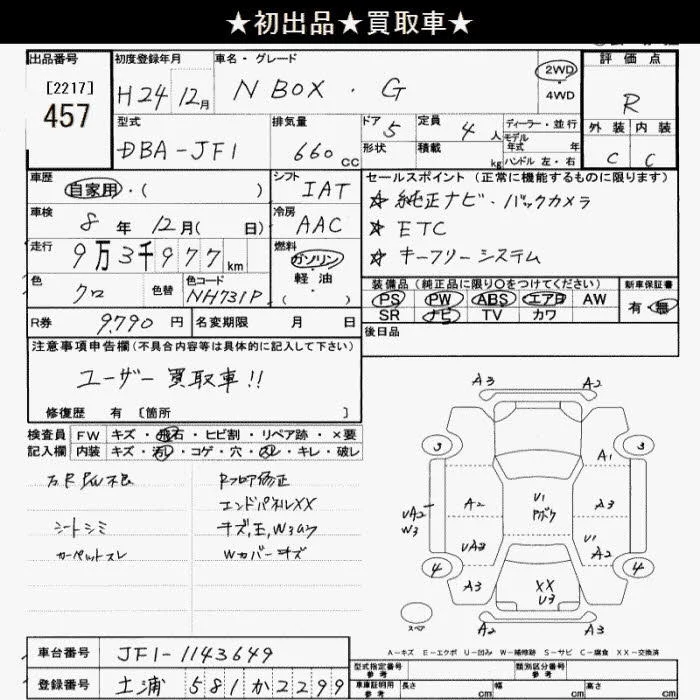 ★初出品★買取車★
出品番号
[2217]
457
初度登録年月
H24年12月
車名・グレード
N BOX ・ G
2WD
・
4WD
評価点
R
外装 内装
C C
型式
DBA-JF1
排気量
660 cc
ドア 5
形状
定員 4 人
積載 kg
ディーラー・並行
モデル
年式 年
ハンドル 左・右
車歴
自家用・( )
シフト
IAT
車検
8年 12月( 日)
冷房
AAC
走行
9万3千977km
燃料
ガソリン
・
軽油
( )
色
クロ
色替
色コード
NH731P
R券 9,790 円
名変期限 月 日
セールスポイント (正常に機能するものに限ります)
☆ 純正ナビ・バックカメラ
☆ ETC
☆ キーフリーシステム
装備品 (純正品に限り○をつけてください)
PS PW ABS エアB AW
SR ナビ TV カワ
新車保証書
有・無
後日品
注意事項申告欄(不具合内容等は具体的に記入して下さい)
ユーザー買取車!!
修復歴 有 [箇所 ]
検査員 FW キズ・飛石・ヒビ割・リペア跡・×要
記入欄 内装 キズ・汚レ・コゲ・穴・スレ・キレ・破レ
シートシミ
カーペットスレ
Rフロア修正
エンドパネルXX
Wカバーキズ
A3 A2
3 3
A1
A2 U1 A3
UA2
W3
UA3 U1
A2
4 4
A3 XX
U3
A2 A3
スペア
A-キズ E-エクボ U-凹み W-補修跡 S-サビ C-腐食 XX-交換済
車台番号 JF1-1143649
登録番号 土浦 581 か 2299
型式指定番号
参考
類別区分番号
参考
車庫証明用
参考
長さ cm 幅 cm 高さ cm